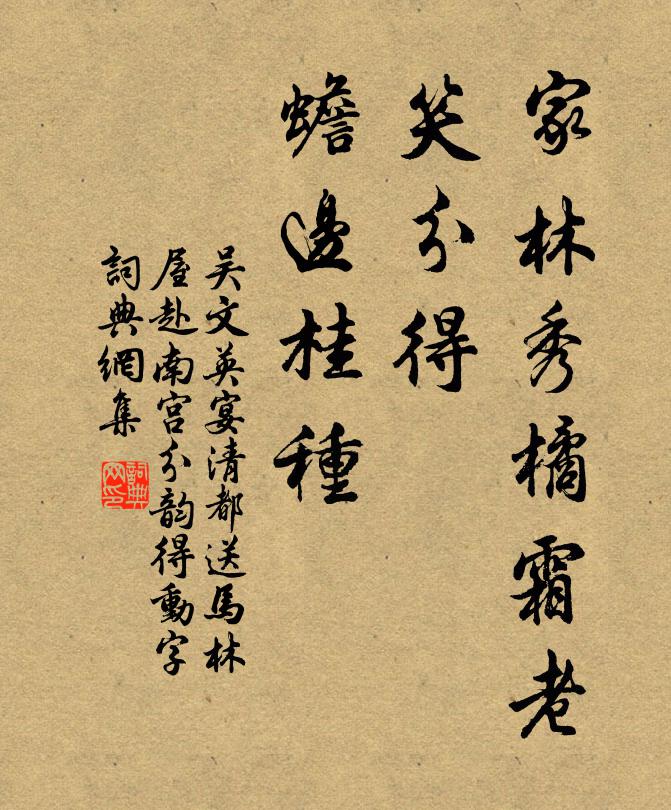 家林秀橘霜老
笑分得
蟾邊桂種
吳文英宴清都送馬林
屋赴南宮分韵得動字
詞典網集
詞典
网印